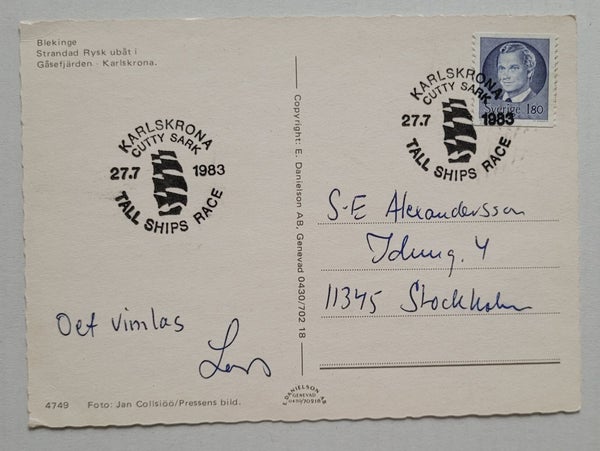 Blekinge
Strandad Rysk ubåt i
Gåsefjärden - Karlskrona.
KARLSKRONA
CUTTY SARK
27.7 1983
TALL SHIPS RACE
Det vimlas
Lars
4749 Foto: Jan Collsiöö/Pressens bild.
Copyright: E. Danielson AB, Genevad 0430/702 18
E. DANIELSON AB
GENEVAD
0430/70218
Sverige 1.80
KARLSKRONA
CUTTY SARK
27.7 1983
TALL SHIPS RACE
S-E Alexandersson
Idung. 4
11345 Stockholm